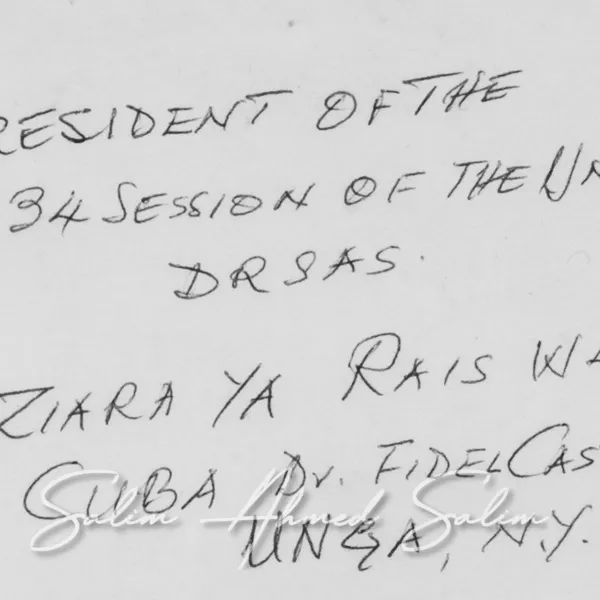 RESIDENT OF THE
34 SESSION OF THE UN
DR SAS.
ZIARA YA RAIS WA
CUBA Dr. FIDEL CAS
UNGA, N.Y.
Salim Ahmed Salim